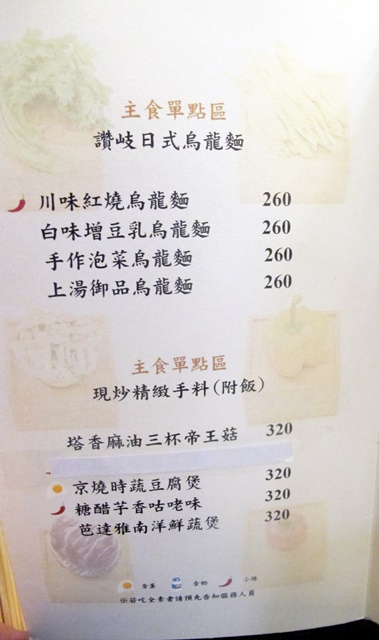 主食單點區
讚岐日式烏龍麵
川味紅燒烏龍麵 260
白味增豆乳烏龍麵 260
手作泡菜烏龍麵 260
上湯御品烏龍麵 260
主食單點區
現炒精緻手料(附飯)
塔香麻油三杯帝王菇 320
京燒時蔬豆腐煲 320
糖醋芋香咕咾味 320
芭達雅南洋鮮蔬煲 320
含蛋 含奶 小辣
※若吃全素者請預先告知服務人員